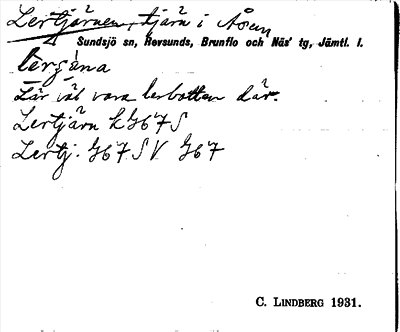 Lertjärnen, tjärn i Åsen
Sundsjö sn, Revsunds, Brunflo och Näs' tg, Jämtl. l.
Lär väl vara lerbotten där.
Lertjärn k G67 S
Lertj. G67 S V G67
C. LINDBERG 1931.